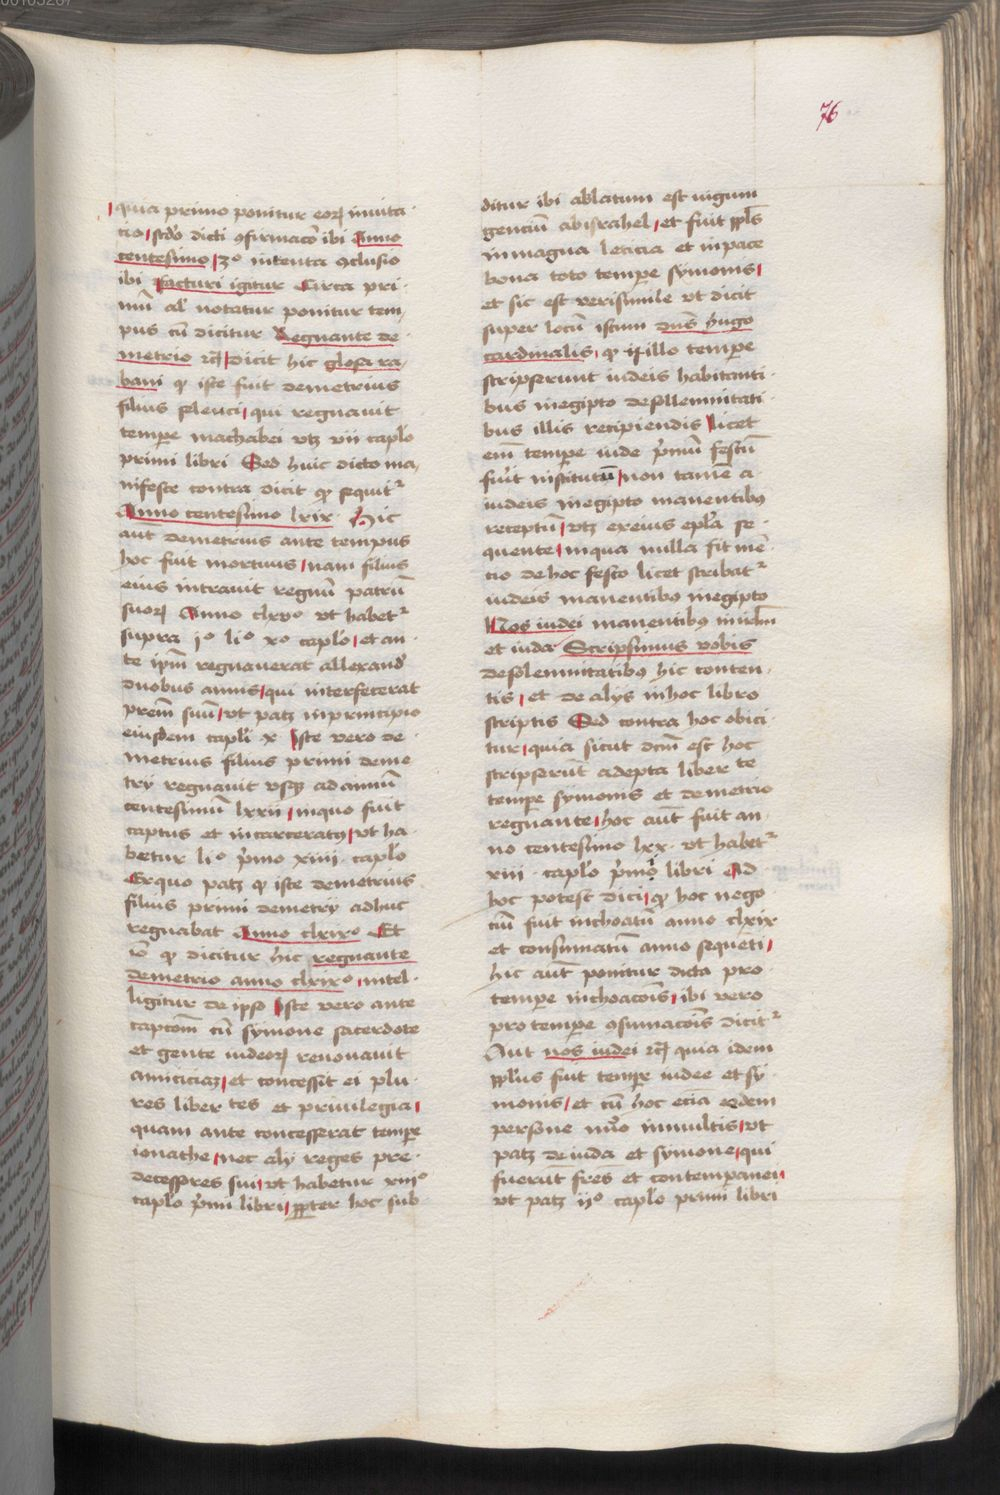 00103267
76
quia primo ponitur eorꝝ inuita
tio scdo dicti ꝯfirmaco ibi Anno
centesimo 3º intenta ꝯclusio
ibi facturi igitur Circa pri
mū al' notatur ponitur tem
pus cū dicitur Regnante de
metrio rcꝭ dicit hic glosa ra
bani ꝙ iste fuit demetrius
filius seleuci qui regnauit
tempe machabei vtꝫ vii caplo
primi libri Sed huic dicto ma
nifeste contra dicit ꝙ sequitr
Anno centesimo lxix Hic
aūt demetrius ante tempus
hoc fuit mortuus nam filius
eius intrauit regnū patrū
suorꝝ Anno clxvº vt habetr
supra jº liº xº caplo et an
te ipm regnauerat allexandr
duobus annis qui interfecerat
prem suū vt patꝫ in principio
eiusdem capli x Iste vero de
metrius filius primi deme
try regnauit vsqꝫ ad annum
centesimū lxxii in quo fuit
captus et incarceratꝰ vt ha
betur liº p̄mo xiiii caplo
Ex quo patꝫ ꝙ iste demetrius
filius primi demetry adhuc
regnabat Anno clxixº Et
iō ꝙ dicitur hic regnante
demetrio anno clxixº intel
ligitur de ipso Iste vero ante
captom̄ cū symone sacerdote
et gente iudeorꝝ renouauit
amiciciaꝫ et concessit ei plu
res liber tes et priuilegia
quam ante concesserat tempe
ionathe nec aly reges pre
decessores sui vt habetur xiiiº
caplo p̄mi libri ꝓpter hoc sub
ditur ibi ablatum est iugum
genciū ab israhel et fuit ppls
in magna leticia et in pace
bona toto tempe symonis
et sic est verisimile vt dicit
super locū istum dns hugo
cardinalis ꝙ in illo tempe
scripserunt iudeis habitanti
bus in egipto de sollemnitati
bus illis recipiendis licet
em̄ tempe iude p̄mū festū
fuit institutū non tamē a
iudeis in egipto manentibꝰ
receptū vtꝫ ex eius epla se
quente in qua nulla fit mē
tio de hoc festo licet scribatr
iudeis manentibꝰ in egipto
Nos iudei manentibus in irlm
et iuda Scripsimus vobis
de solemnitatibꝰ hic conten
tis et de alys in hoc libro
scriptis Sed contra hoc obici
tur quia sicut dcm̄ est hoc
scripserūt adepta liber te
tempe symonis et demetrio
regnante hoc aūt fuit an
no centesimo lxx vt habetr
xiii caplo p̄mi libri Ad
hoc potest dici ꝙ hoc nego
ciū fuit inchoatū anno clxix
et consumatū anno sequeti
hic aūt ponitur dicta pro
tempe inchoacois ibi vero
pro tempe ꝯsumacois dicitr
Aut nos iudei rcꝭ quia idem
pplus fuit tempe iudee et sy
monis et cū hoc ecia eedem
persone nuo in multis vt
patꝫ de iuda et symone qui
fuerūt fres et contempanei
vt patꝫ ijº caplo primi libri